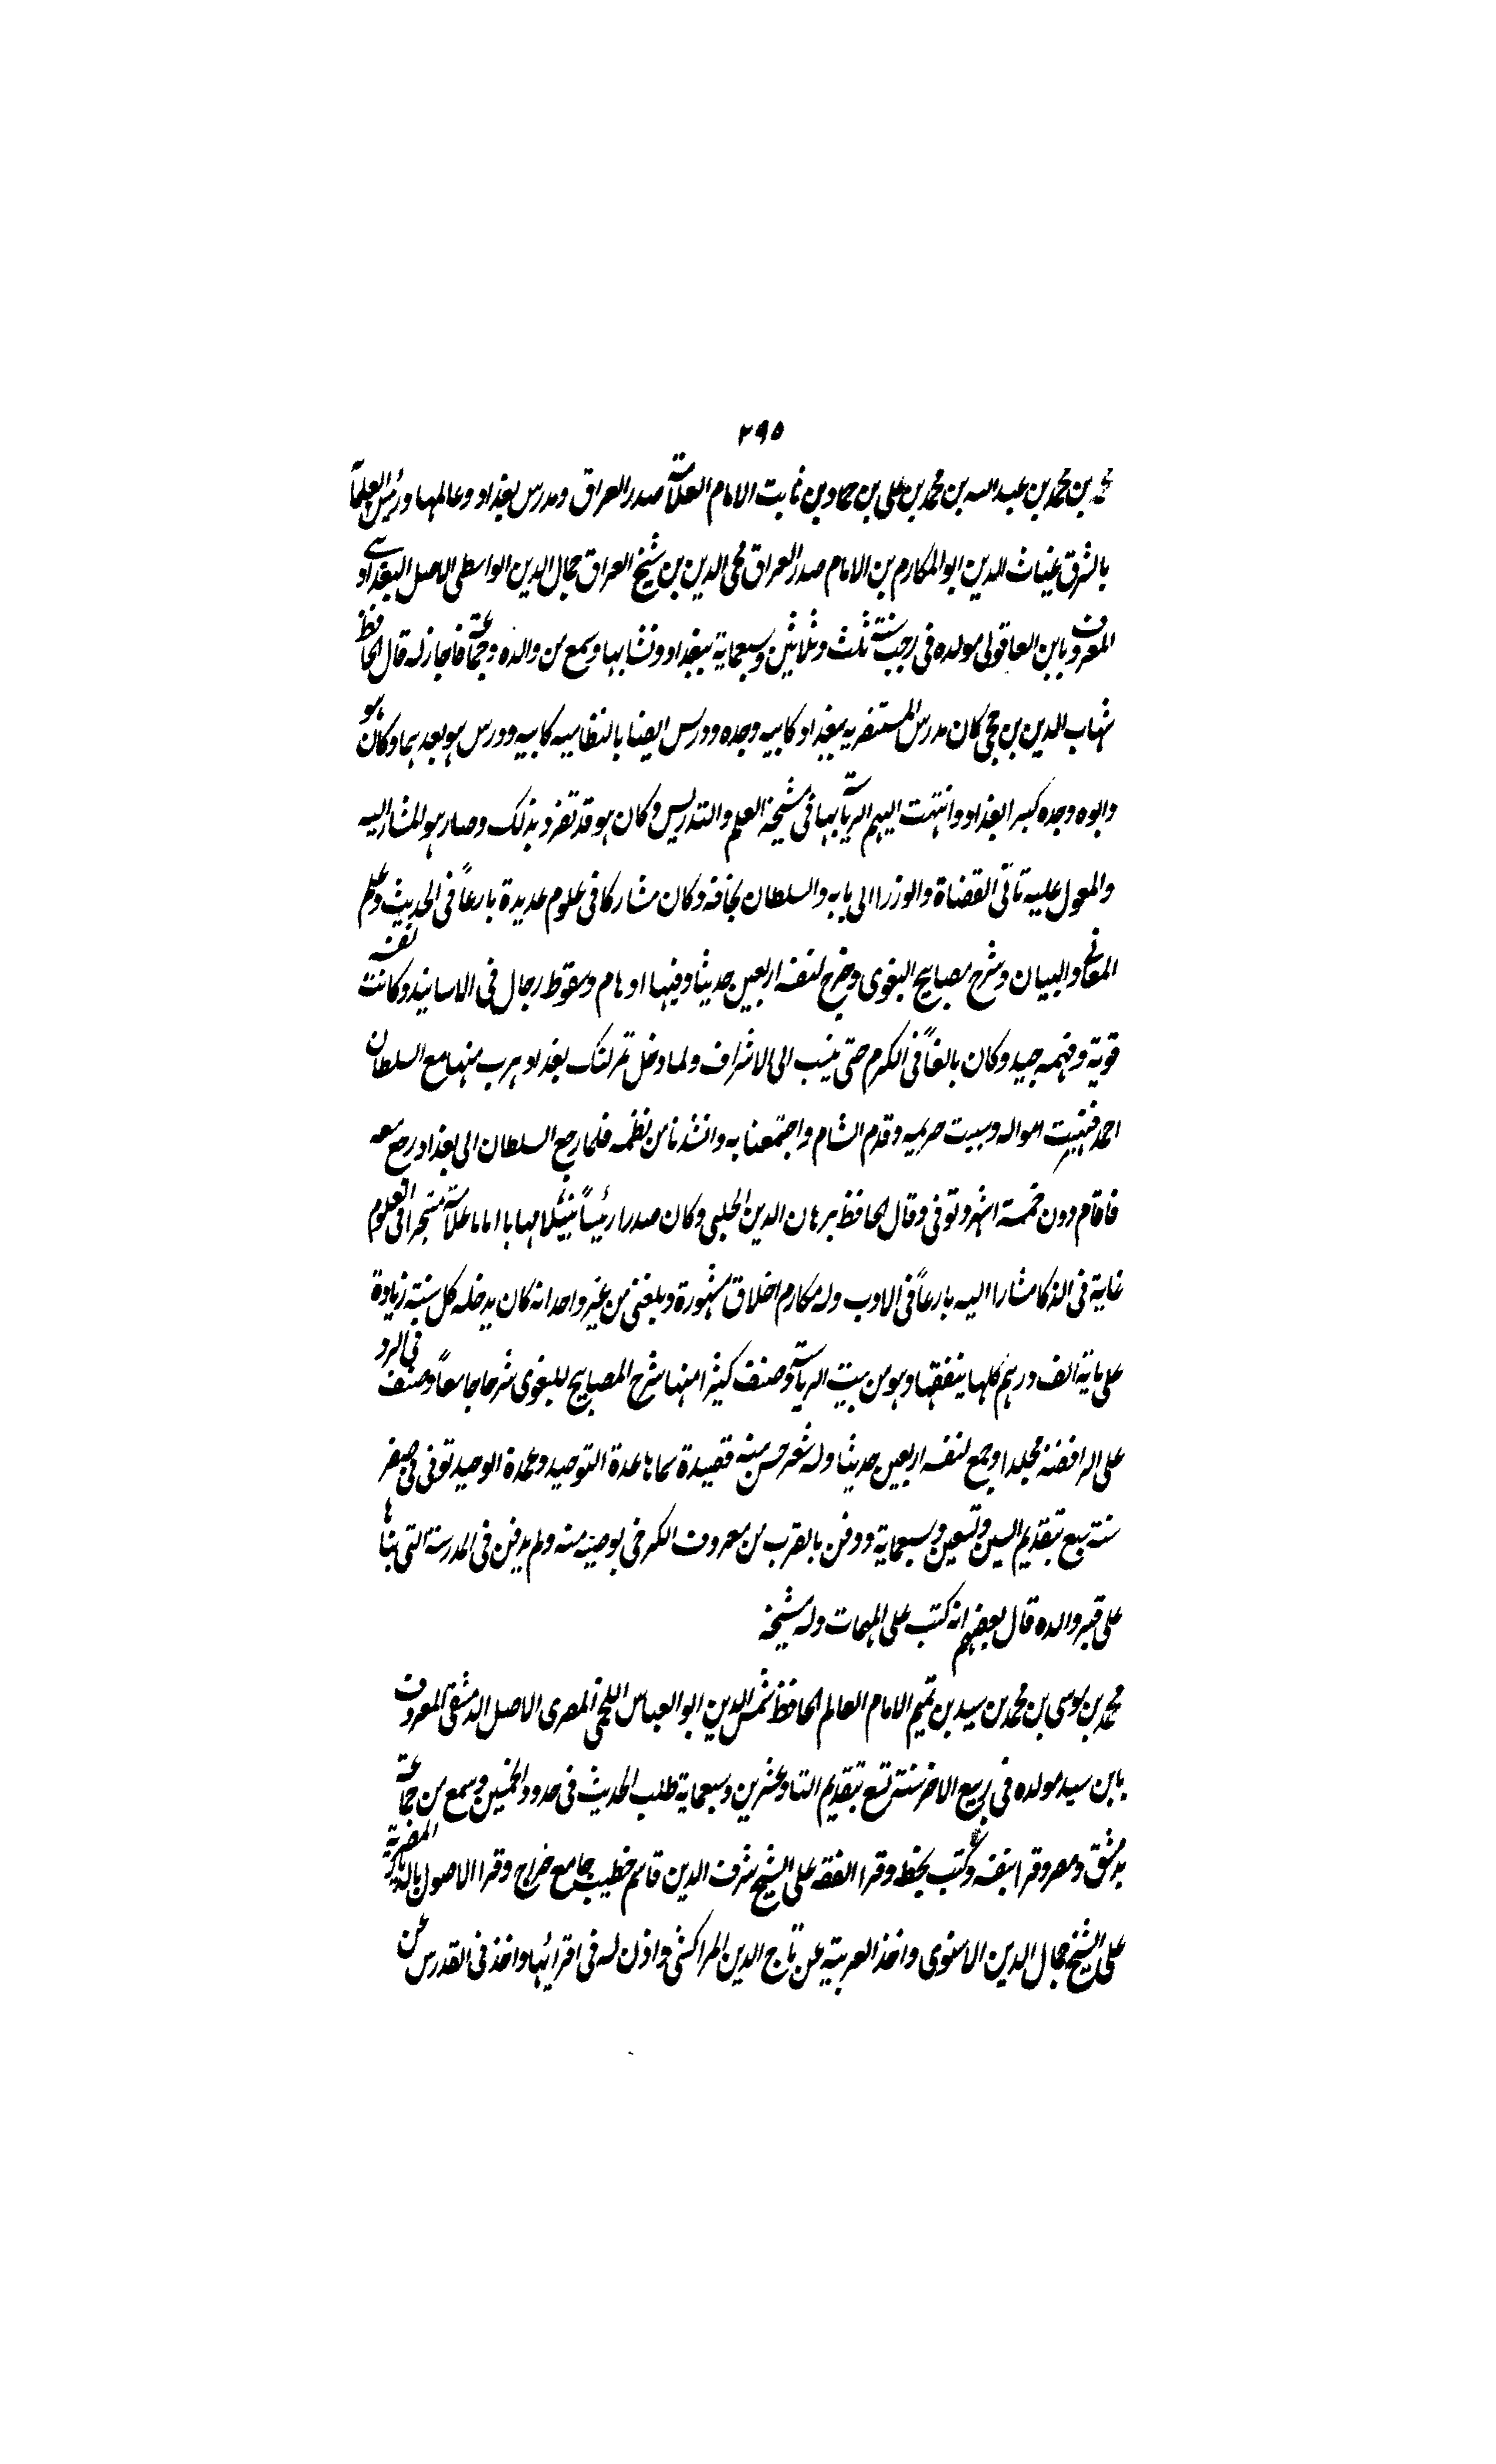 ٢٩٥
محمد بن محمد بن عبد الله بن محمد بن علي بن حماد بن ثابت الامام العلامة صدر العراق ومدرس بغداد وعالمها ورئيس العلماء
بالشرق غياث الدين ابو المكارم بن الامام صدر العراق محي الدين بن شيخ العراق جمال الدين الواسطي الاصل البغدادي
المعروف بابن العاقولي مولده في رجب سنة ثلث وثلاثين وسبعماية ببغداد ونشا بها وسمع من والده وجماعة فاجاز له قال الحافظ
شهاب الدين بن حجي كان مدرس المستنصرية ببغداد كابيه وجده ودرس ايضا بالنظامية كابيه ودرس هو بعد هما وكان هو
وابوه وجده كبرا بغداد وانتهت اليهم الرياسة بها في مشيخة العلم والتدريس وكان هو قد تفرد بذلك وصار هو المشار اليه
والمعول عليه تاتي القضاة والوزرا الى بابه والسلطان يخافه وكان مشاركا في علوم عديدة بارعاً في الحديث وعلم
المعاني والبيان وشرح مصابيح البغوي وخرج لنفسه اربعين حديثا وفيها اوهام وسقوط رجال في الاسانيد وكانت نفسه
قوية وفهمه جيد وكان بالغاً في الكرم حتى ينسب الى الاشراف ولما دخل تمرلنك بغداد هرب منها مع السلطان
احمد فنهبت امواله وسبيت حريمه وقدم الشام واجتمعنا به وانشدنا من نظمه فلما رجع السلطان الى بغداد رجع معه
فاقام دون خمسة اشهر وتوفي وقال الحافظ برهان الدين الحلبي وكان صدرا رئيساً نبيلا مهابا اماما علامة متبحرا في العلوم
غاية في الذكا مشارا اليه بارعاً في الادب وله مكارم اخلاق مشهورة وبلغني من غير واحد انه كان يدخله كل سنة زيادة
على ماية الف درهم كلها ينفقها وهو من بيت الرياسة وصنف كثيرا منها شرح المصابيح للبغوي شرحا جامعاً وصنف في الرد
على الرافضة مجلدا وجمع لنفسه اربعين حديثا وله شعر حسن منه قصيدة سماها عدة التوحيد وعمدة الوحيد توفي في صفر
سنة سبع بتقديم السين وتسعين وسبعماية ودفن بالقرب من معروف الكرخي بوصية منه ولم يدفن في المدرسة التي بناها
على قبر والده قال بعضهم انه كتب على المهمات وله مشيخة
محمد بن موسى بن محمد بن سيد بن تميم الامام العالم الحافظ شمس الدين ابو العباس اللخمي المصري الاصل الدمشقي المعروف
بابن سيد مولده في ربيع الاخر سنة تسع بتقديم التا وعشرين وسبعماية طلب الحديث في حدود الخمسين وسمع من جماعة
بدمشق ومصر وقرا بنفسه وكتب بخطه وقرا الفقه على الشيخ شرف الدين قاسم خطيب جامع جراح وقرا الاصول بالديار المصرية
على الشيخ جمال الدين الاسنوي واخذ العربية عن تاج الدين المراكشي واذن له في اقرائها واخذ في القدس عن